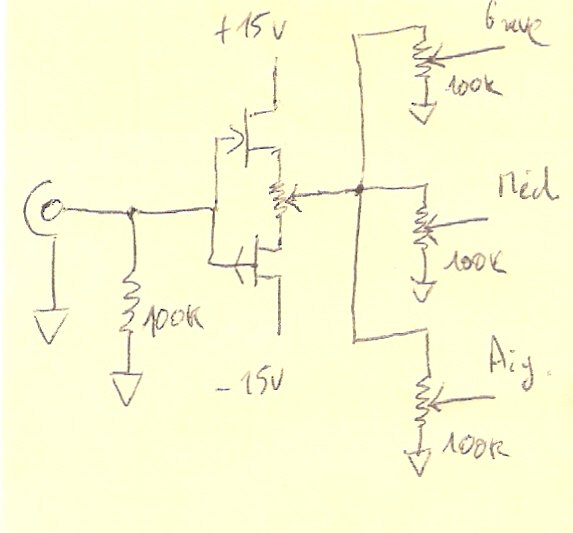 +15V
Grave
100K
Méd
100K
100K
-15V
Aig.
100K